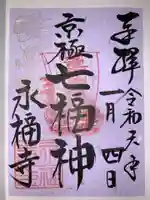 奉拝
令和六年
一月四日
京極
七福神
永福寺